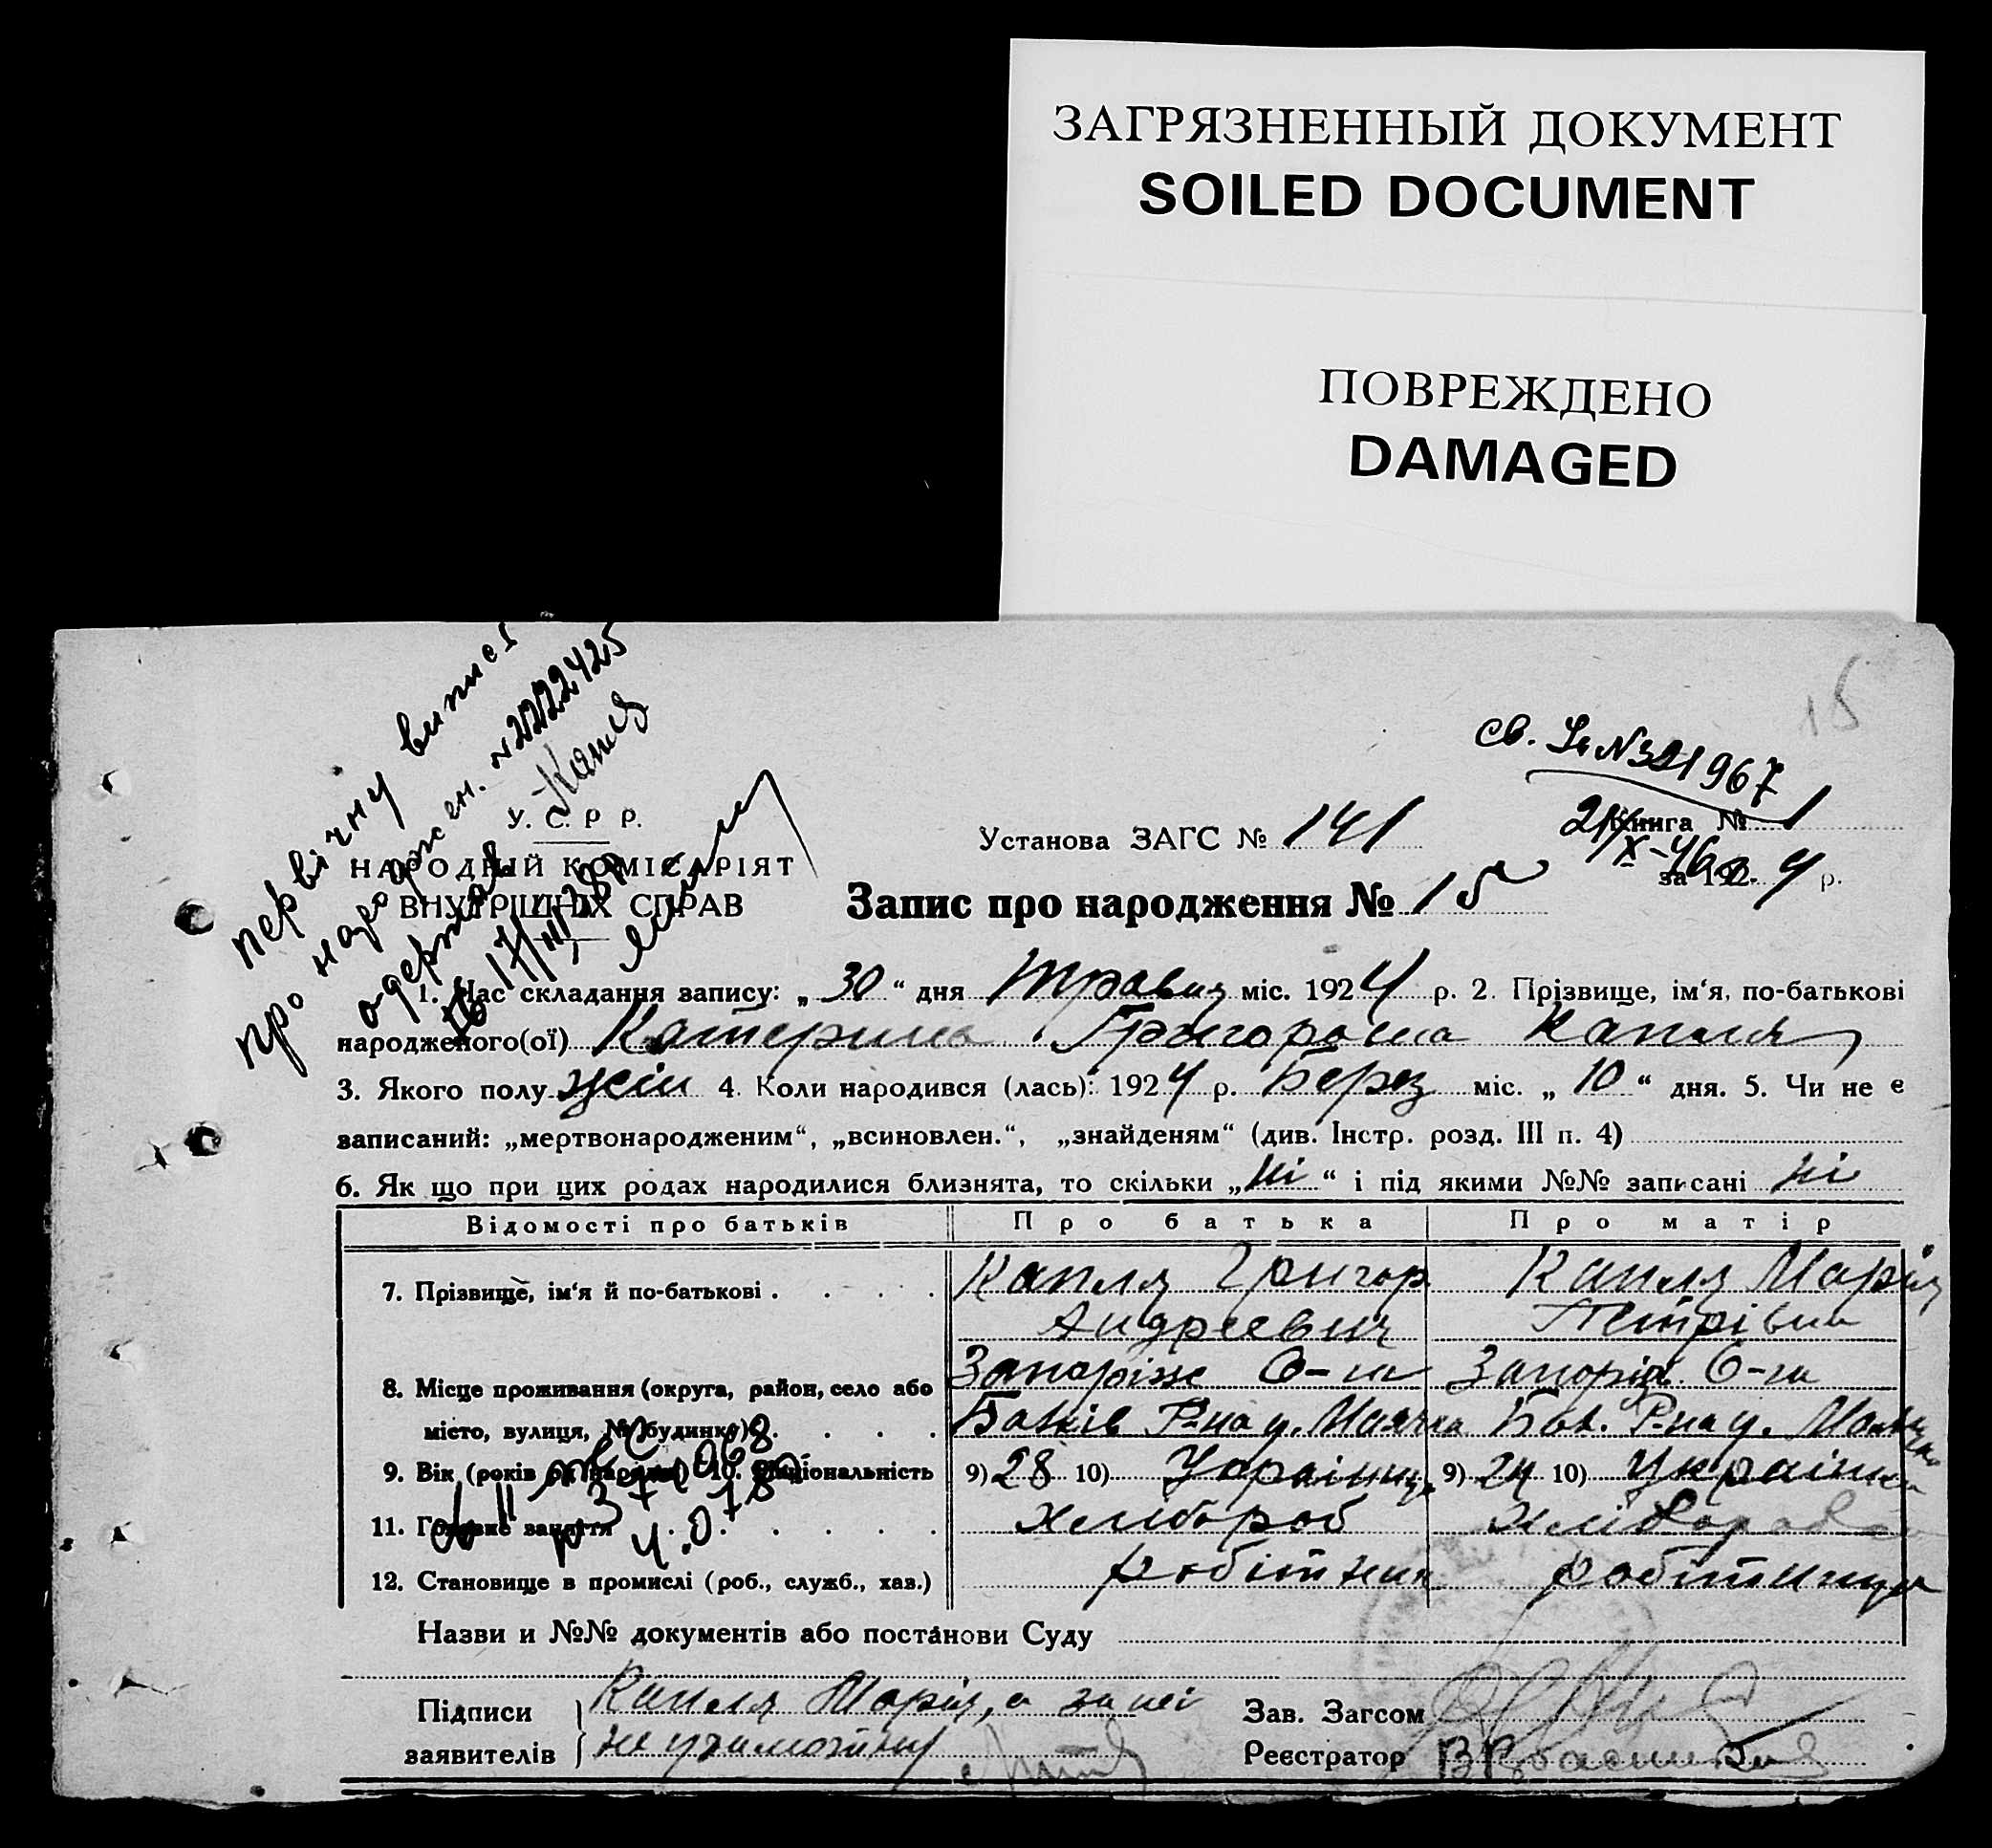 ЗАГРЯЗНЕННЫЙ ДОКУМЕНТ
SOILED DOCUMENT
ПОВРЕЖДЕНО
DAMAGED
15
первічну випись
про народжен. № 2222425
одержав Капля
17/III
св. № 321967
21/X-46
У. С. Р Р.
НАРОДНЫЙ КОМІСАРІЯТ
ВНУТРІШНІХ СПРАВ
Установа ЗАГС № 141
Книга № 1
за 1924 р.
Запис про народження № 15
1. Час складання запису: „ 30 “ дня Травня міс. 1924 р. 2. Прізвище, ім‘я, по-батькові
народженого(ої) Катерина Григоровна Капля
3. Якого полу жін 4. Коли народився (лась): 1924 р. Берез міс. „ 10 “ дня. 5. Чи не є
записаний: „мертвонародженим“, „всиновлен.“, „знайденям“ (див. Інстр. розд. III п. 4)
6. Як що при цих родах народилися близнята, то скільки „ ні “ і під якими №№ записані ні
Відомості про батьків Про батька Про матір
7. Прізвище, ім‘я й по-батькові Капля Григор Капля Марія
Андреевич Петрівна
8. Місце проживання (округа, район, село або Запоріж О-га Запоріж О-га
місто, вулиця, № будинку) Р-на Маячка Р-на
9. Вік (років од народж.) 10. Національність 9) 28 10) Українец 9) 24 10) Українка
11. Головне заняття Хлібороб Хлібороб
12. Становище в промислі (роб., служб., хаз.) робітник робітниця
Назви и №№ документів або постанови Суду
Підписи Капля Марія, а за неї
заявителів неграмотну
Зав. Загсом
Реєстратор